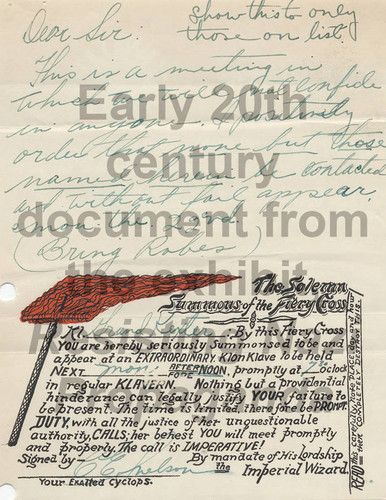 Dear Sir. Show this to only
those on list.
This is a meeting in
which we will not confide
in anyone. I positively
order that none but those
name herein be contacted
and without fail appear.
(Bring Robes)
Early 20th
century
document from
the exhibit
The Solemn
Summons of the Fiery Cross
Kl. By this Fiery Cross
You are hereby seriously Summonsed to be and
appear at an EXTRAORDINARY Klon Klave to be held
NEXT Mon. AFTERNOON, FORE promptly at 7:30 o'clock
in regular KLAVERN. Nothing but a providential
hinderance can legally justify YOUR failure to
be present. The time is limited, therefore be PROMPT.
DUTY, with all the justice of her unquestionable
authority, CALLS; her behest YOU will meet promptly
and properly. The call is IMPERATIVE!
Signed by By mandate of His Lordship
C C Nelson the Imperial Wizard.
Your Exalted Cyclops.
READ this carefully, note PLACE, day and hour
THEN COMPLETELY DESTROY THIS